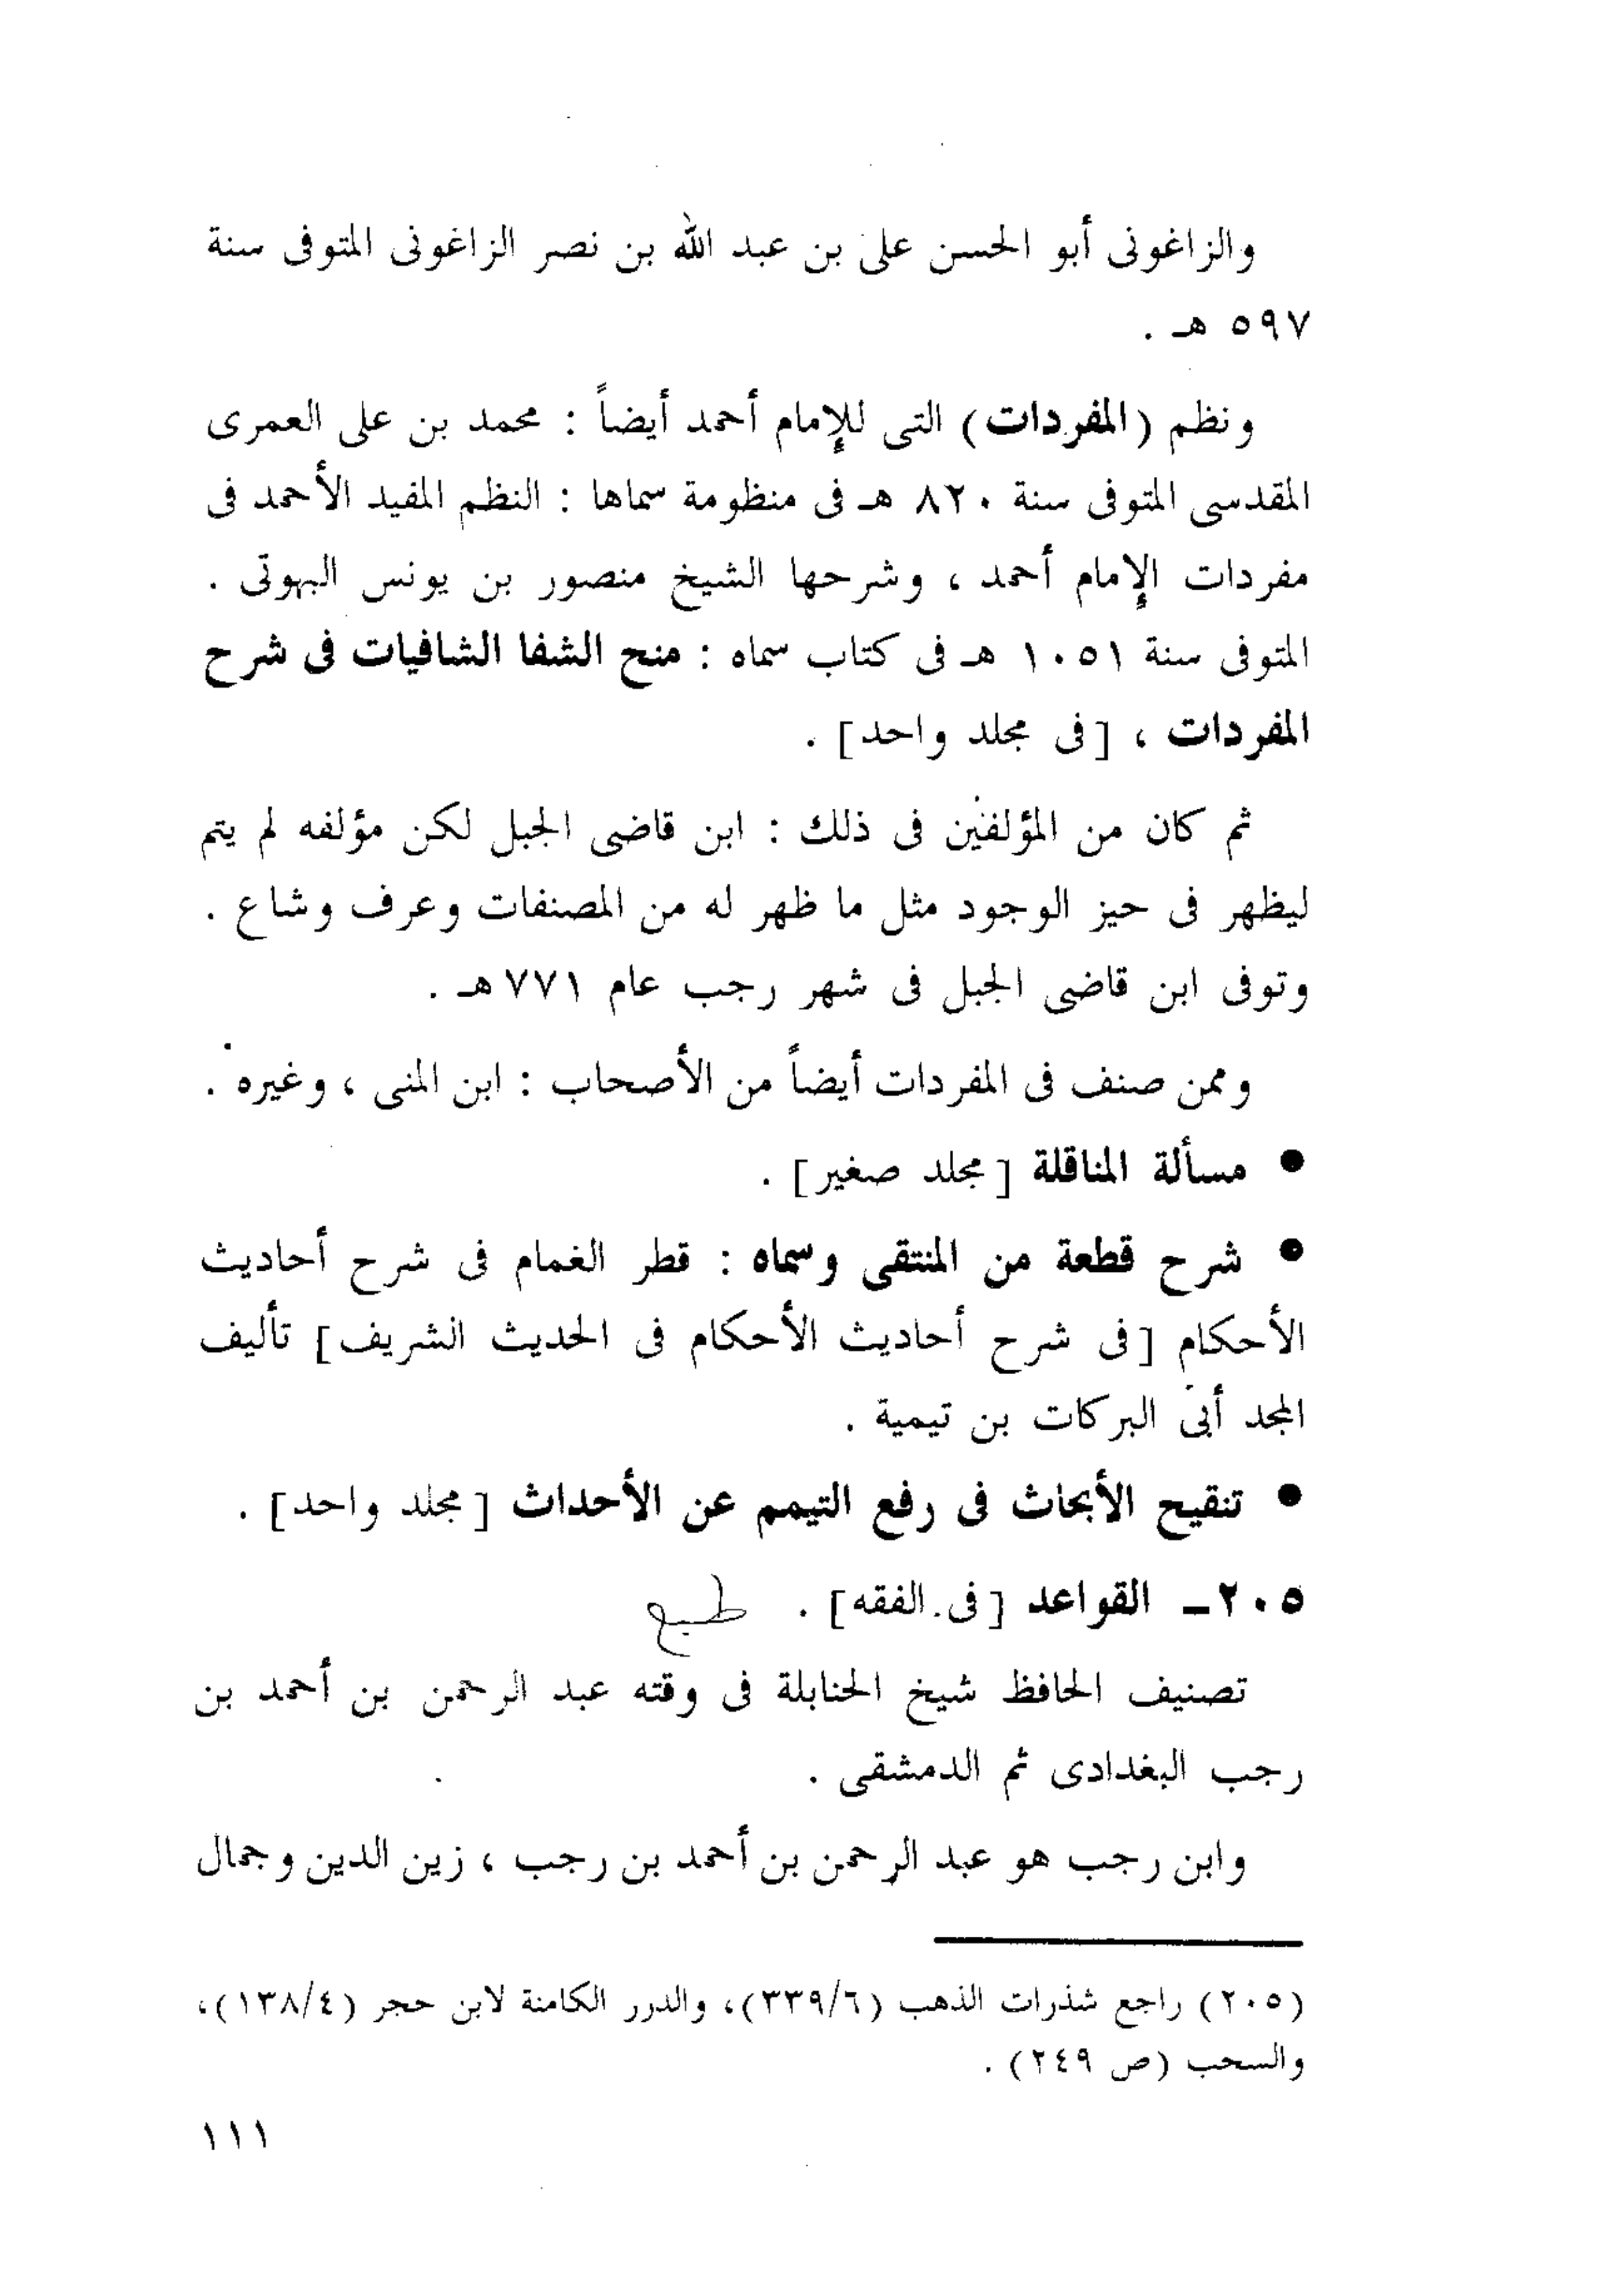 والزاغونى أبو الحسن على بن عبد الله بن نصر الزاغونى المتوفى سنة
٥٩٧ هـ .
ونظم (المفردات) التى للإمام أحمد أيضاً : محمد بن على العمرى
المقدسى المتوفى سنة ٨٢٠ هـ فى منظومة سماها : النظم المفيد الأحمد فى
مفردات الإمام أحمد ، وشرحها الشيخ منصور بن يونس البهوتى .
المتوفى سنة ١٠٥١ هـ فى كتاب سماه : منح الشفا الشافيات فى شرح
المفردات ، [فى مجلد واحد] .
ثم كان من المؤلفين فى ذلك : ابن قاضى الجبل لكن مؤلفه لم يتم
ليظهر فى حيز الوجود مثل ما ظهر له من المصنفات وعرف وشاع .
وتوفى ابن قاضى الجبل فى شهر رجب عام ٧٧١ هـ .
وممن صنف فى المفردات أيضاً من الأصحاب : ابن المنى ، وغيره .
• مسألة المناقلة [مجلد صغير] .
• شرح قطعة من المنتقى وسماه : قطر الغمام فى شرح أحاديث
الأحكام [فى شرح أحاديث الأحكام فى الحديث الشريف] تأليف
المجد أبى البركات بن تيمية .
• تنقيح الأبحاث فى رفع التيمم عن الأحداث [مجلد واحد] .
٢٠٥ ـ القواعد [فى الفقه] . طبع
تصنيف الحافظ شيخ الحنابلة فى وقته عبد الرحمن بن أحمد بن
رجب البغدادى ثم الدمشقى .
وابن رجب هو عبد الرحمن بن أحمد بن رجب ، زين الدين وجمال
(٢٠٥) راجع شذرات الذهب (٣٣٩/٦)، والدرر الكامنة لابن حجر (١٣٨/٤)،
والسحب (ص ٢٤٩) .
١١١